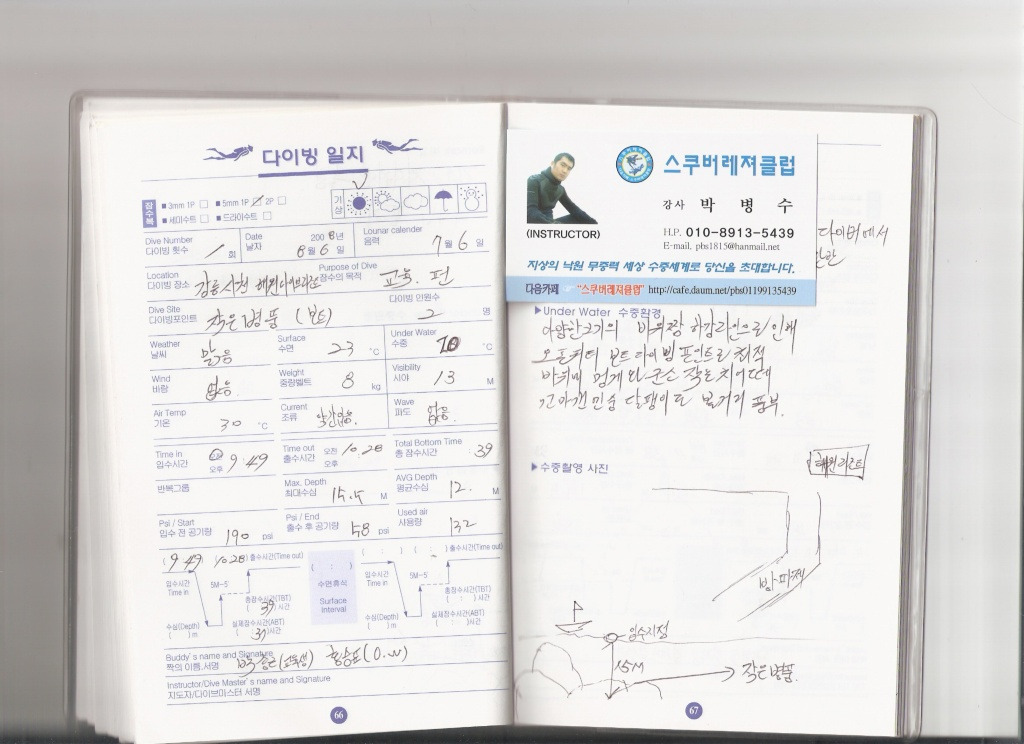 다이빙 일지
잠수복
■ 3mm 1P □ ■ 5mm 1P □ 2P □
■ 세미수트 □ ■ 드라이수트 □
기상
Dive Number
다이빙 횟수 1 회
Date
날자 2008년
8월 6일
Lounar calender
음력 7월 6일
Location
다이빙 장소
Purpose of Dive
잠수의 목적 교육. 펀
Dive Site
다이빙포인트 작은병풍 (보트)
다이빙 인원수
2 명
Weather
날씨 맑음
Surface
수면 23 °C
Under Water
수중 °C
Wind
바람 없음
Weight
중량벨트 8 kg
Visibility
시야 13 M
Air Temp
기온 30 °C
Current
조류 약간있음.
Wave
파도 없음
Time in
입수시간 오전 오후 9:49
Time out
출수시간 오전 오후 10.28
Total Bottom Time
총 잠수시간 :39
반복그룹
Max. Depth
최대수심 15.5 M
AVG Depth
평균수심 12. M
Psi / Start
입수 전 공기량 190 psi
Psi / End
출수 후 공기량 58 psi
Used air
사용량 132
(9:49) (10:28) 출수시간(Time out)
입수시간
Time in
5M-5'
총잠수시간(TBT)
( 39 )시간
수심(Depth)
( )m
실제잠수시간(ABT)
( 37 )시간
( : )
수면휴식
Surface
Interval
( : ) ( : ) 출수시간(Time out)
입수시간
Time in
5M-5'
총잠수시간(TBT)
( : )시간
수심(Depth)
( )m
실제잠수시간(ABT)
( : )시간
Buddy's name and Signature
짝의 이름,서명
Instructor/Dive Master's name and Signature
지도자/다이브마스터 서명
66
스쿠버레져클럽
강사 박 병 수
(INSTRUCTOR)
H.P. 010-8913-5439
E-mail. pbs1815@hanmail.net
지상의 낙원 무중력 세상 수중세계로 당신을 초대합니다.
다음카페 ☞ "스쿠버레져클럽" http://cafe.daum.net/pbs01199135439
다이버에서
▶Under Water 수중환경
아담한크기의 바위과 하강라인으로 인해
오픈워터 보트다이빙 포인트로 최적
바위에 멍게와 군소 작은 치어떼
갯민숭 달팽이도 볼거리 풍부.
▶수중촬영 사진
해원리조트
방파제
입수지점
15M
작은병풍.
67